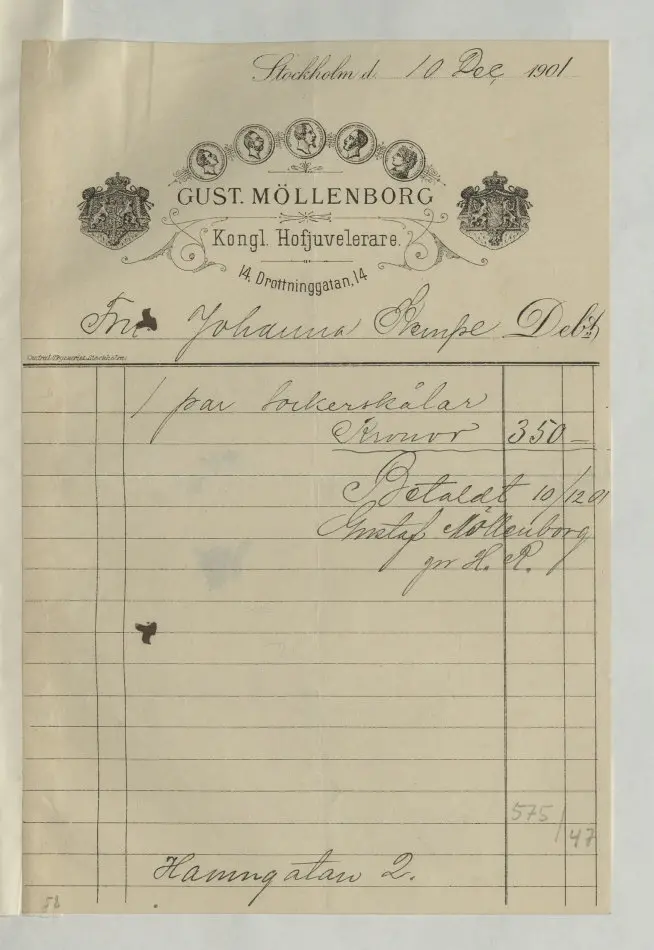 Stockholm d. 10 Dec. 1901
GUST. MÖLLENBORG
Kongl. Hofjuvelerare.
14. Drottninggatan, 14
Fru Johanna Kempe Debt
Central-Tryckeriet, Stockholm
1 par sockerskålar
Kronor 350 –
Betaldt 10/12 01
Gustaf Möllenborg
gm H. R.
575/47
Hamngatan 2.
58